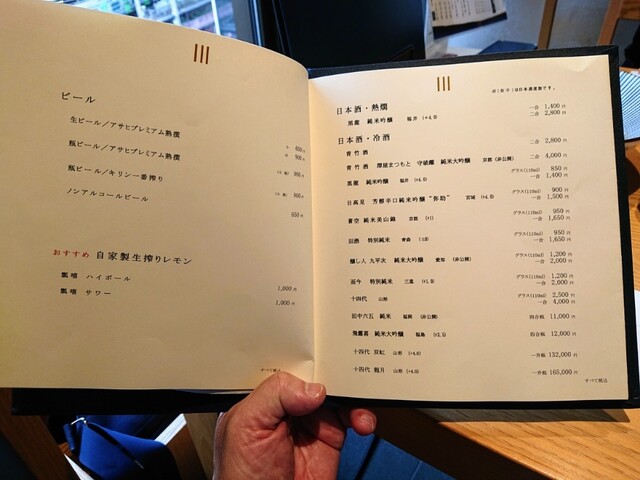 ビール
生ビール／アサヒプレミアム熟撰
小 650円
中 900円
瓶ビール／アサヒプレミアム熟撰
（中瓶） 900円
瓶ビール／キリン一番搾り
（中瓶） 900円
ノンアルコールビール
650円
おすすめ 自家製生搾りレモン
瓢嘻 ハイボール 1,000円
瓢嘻 サワー 1,000円
すべて税込
は日本酒度数です。
日本酒・熱燗
黒龍 純米吟醸 福井 (+4.5) 一合 1,400円
二合 2,800円
日本酒・冷酒
青竹酒 二合 2,800円
青竹酒 澤屋まつもと 守破離 純米大吟醸 京都（非公開） 二合 4,000円
黒龍 純米吟醸 福井 (+4.5) グラス(110ml) 850円
一合 1,400円
日高見 芳醇辛口純米吟醸“弥助” 宮城 グラス(110ml) 900円
一合 1,500円
蒼空 純米美山錦 京都 グラス(110ml) 950円
一合 1,650円
田酒 特別純米 青森 グラス(110ml) 950円
一合 1,650円
醸し人九平次 純米大吟醸 愛知（非公開） グラス(110ml) 1,200円
一合 2,000円
而今 特別純米 三重 (+1.0) グラス(110ml) 1,200円
一合 2,000円
十四代 山形 グラス(110ml) 2,500円
一合 4,000円
田中六五 純米 福岡（非公開） 四合瓶 11,000円
飛露喜 純米大吟醸 福島 四合瓶 12,000円
十四代 双虹 山形 (+4.0) 一升瓶 132,000円
十四代 龍月 山形 (+4.0) 一升瓶 165,000円
すべて税込